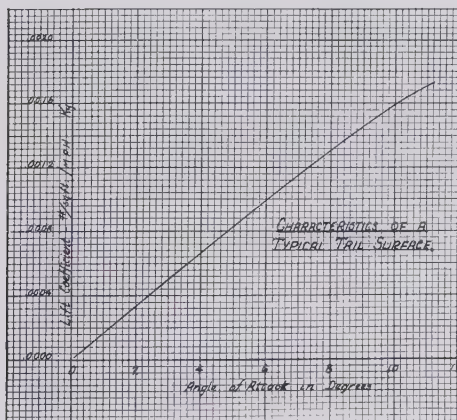 .0020
.0016
.0012
.0008
.0004
.000
Lift Coefficient - #/sq.ft./1 M.P.H. Ky
CHARACTERISTICS OF A
TYPICAL TAIL SURFACE.
0 2 4 6 8 10 12
Angle of Attack in Degrees